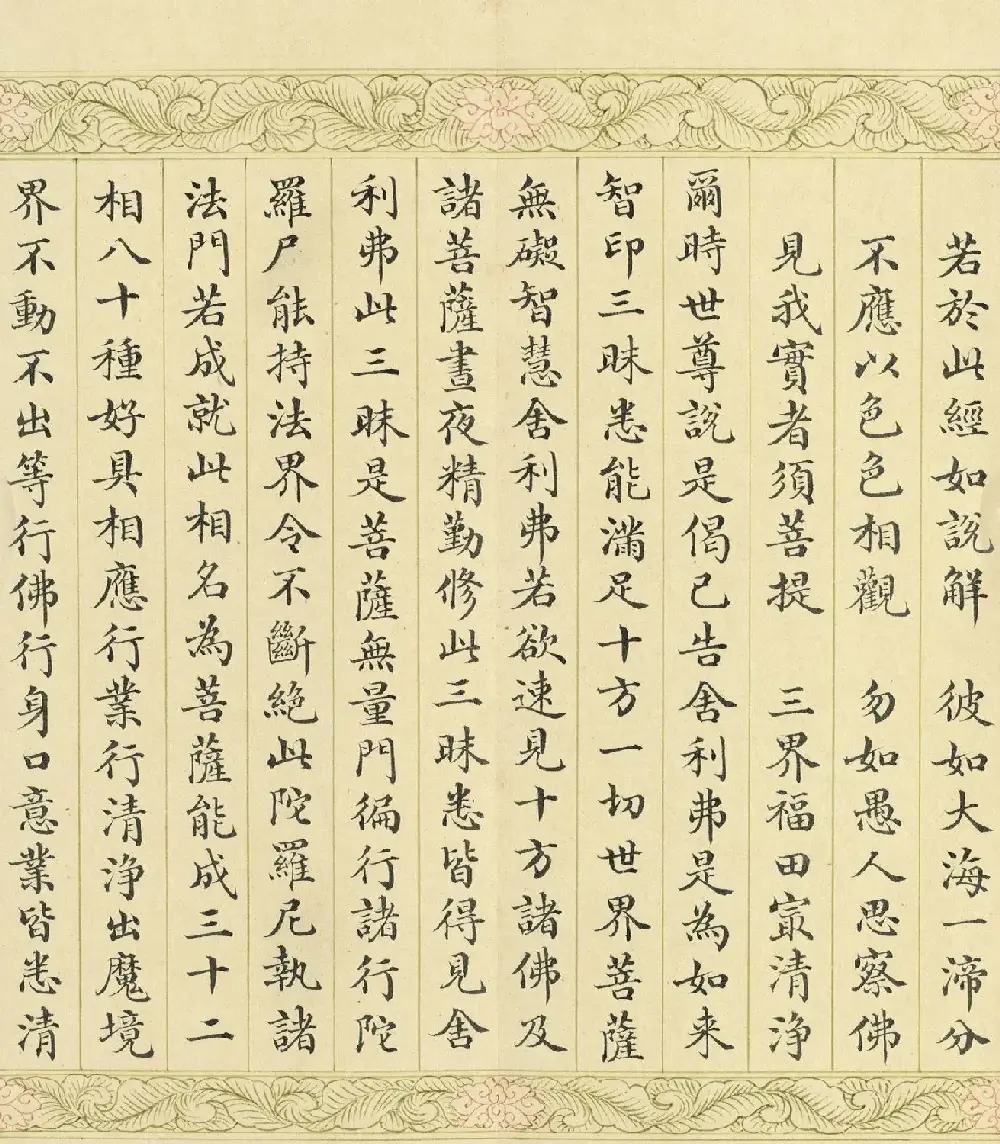 若於此經如說解　彼如大海一渧分
不應以色色相觀　勿如愚人思察佛
見我實者須菩提　三界福田㝡清淨
爾時世尊說是偈已告舍利弗是為如来
智印三昧悉能滿足十方一切世界菩薩
無礙智慧舍利弗若欲速見十方諸佛及
諸菩薩晝夜精勤修此三昧悉皆得見舍
利弗此三昧是菩薩無量門徧行諸行陀
羅尸能持法界令不斷絶此陀羅尼執諸
法門若成就此相名為菩薩能成三十二
相八十種好具相應行業行清淨出魔境
界不動不出等行佛行身口意業皆悉清